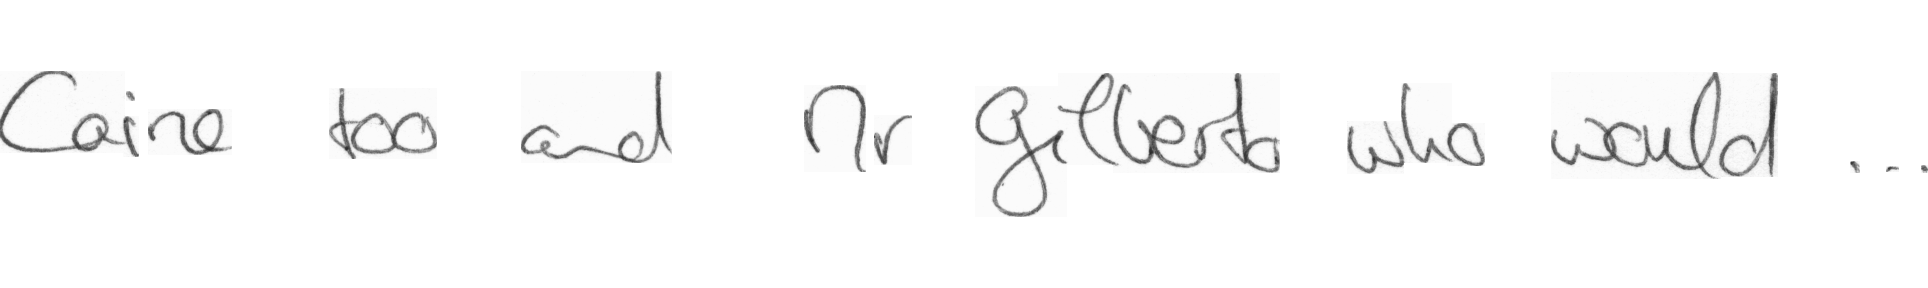 Caine too and Mr Gilberto who would ...